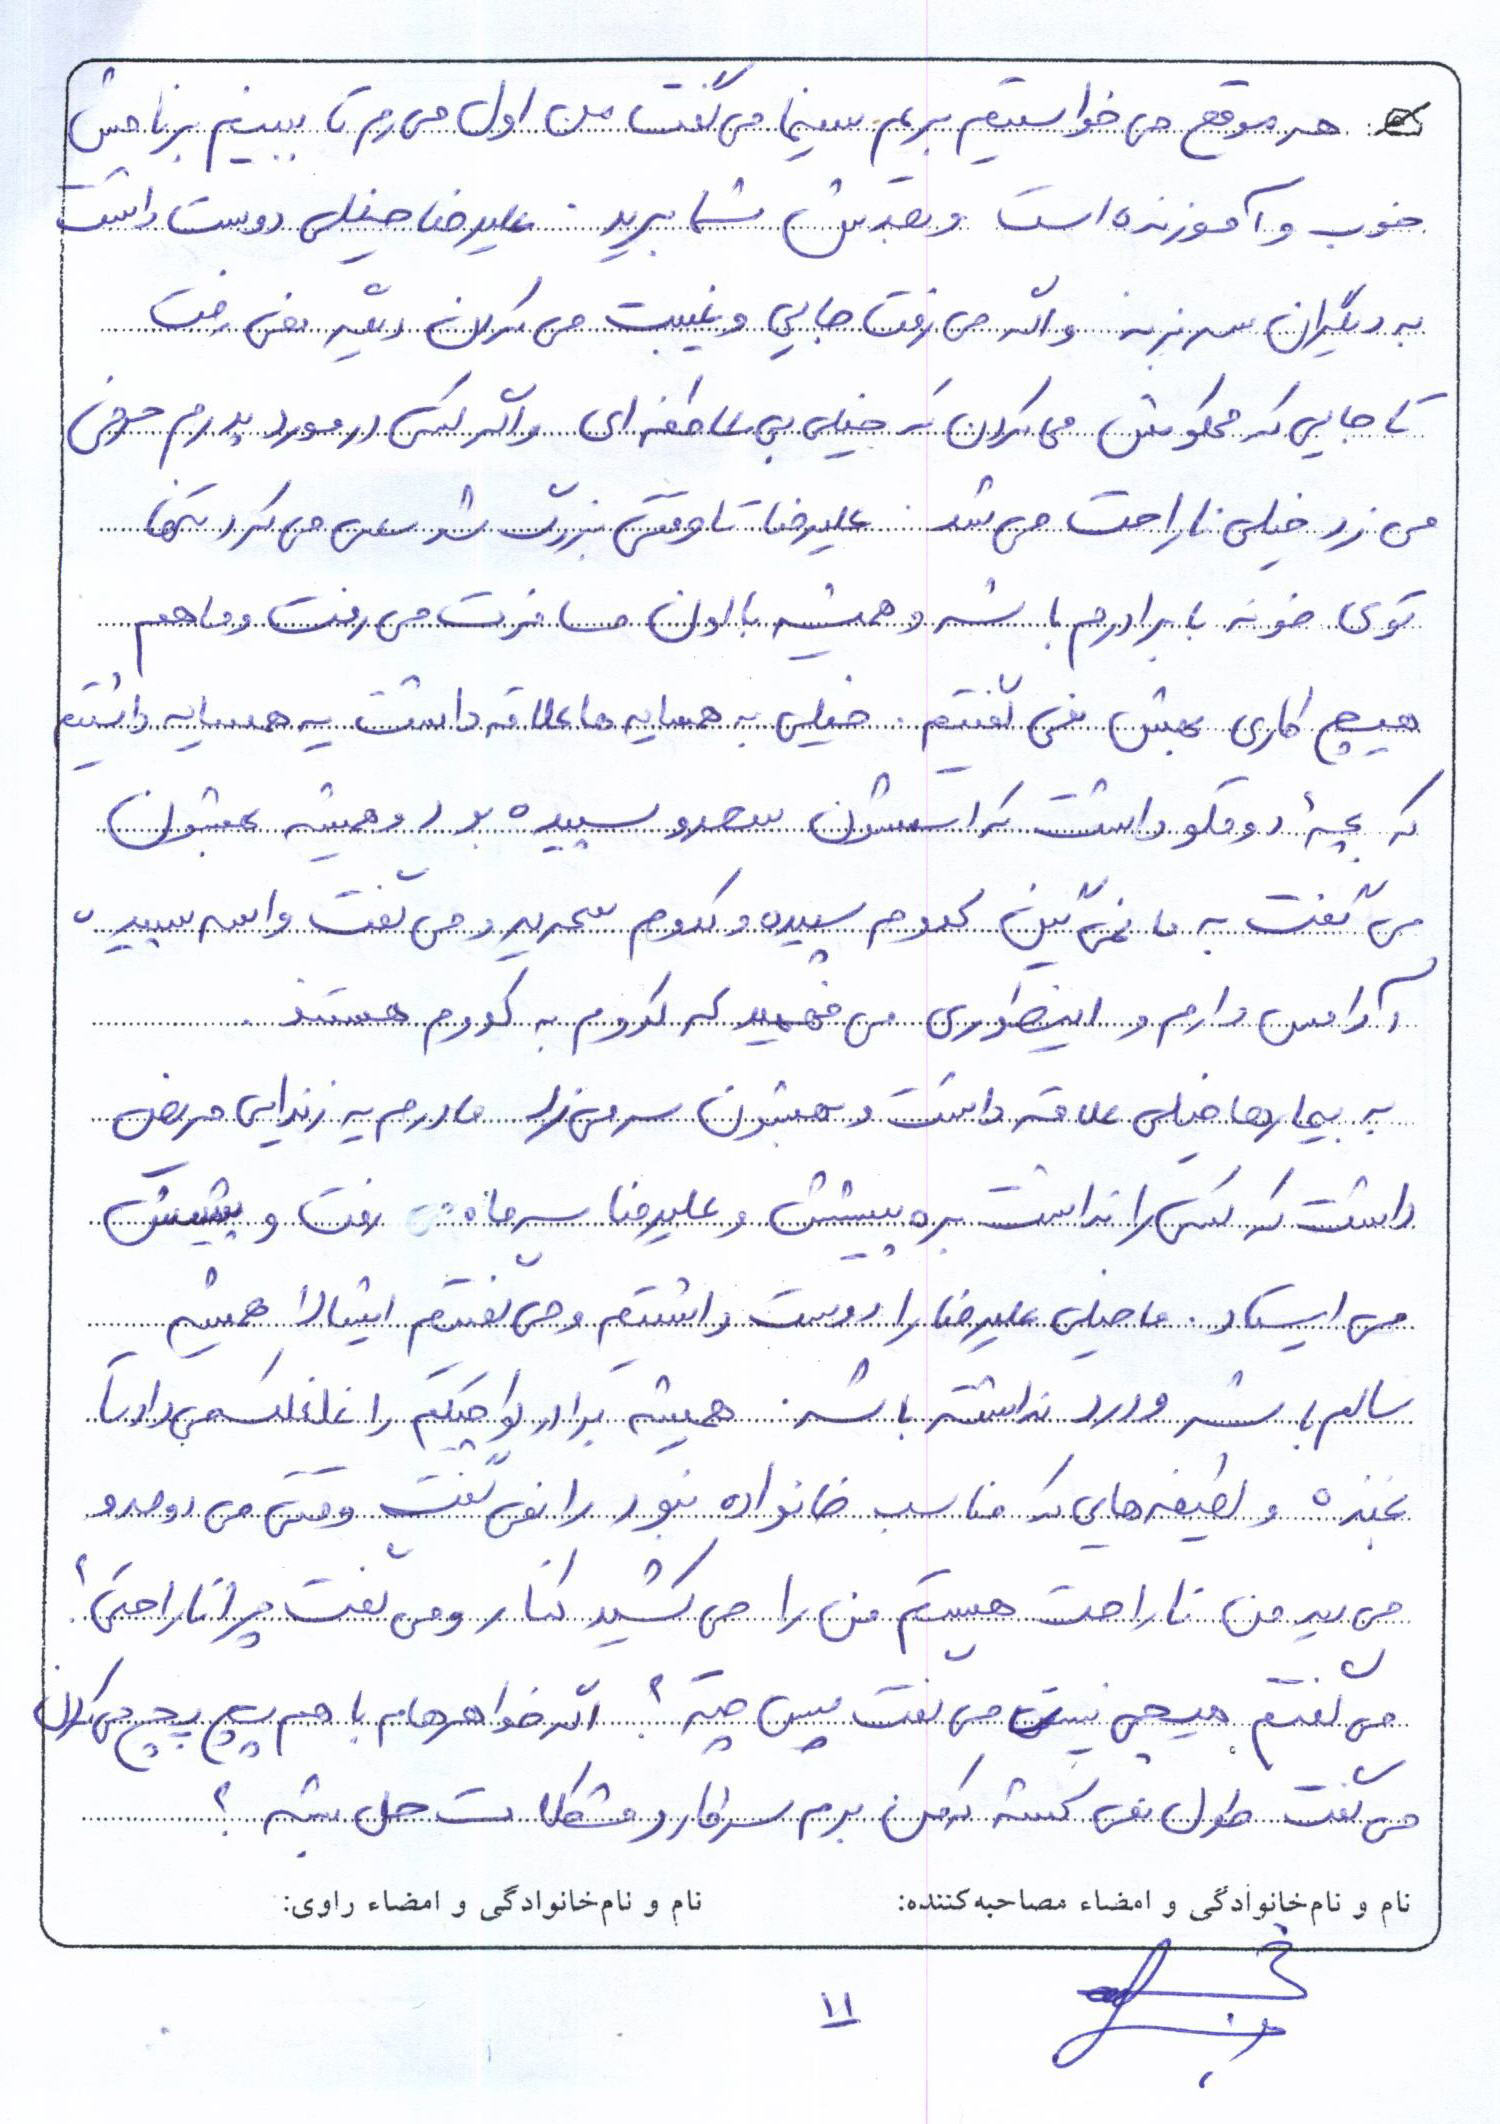 هر موقع می خواستیم بریم سینما می گفت من اول می رم تا ببینم برنامش
خوب و آموزنده است و بعدش شما برید. علیرضا خیلی دوست داشت
به دیگران سر بزنه و اگه می رفت جایی و غیبت می کردن دیگه نمی رفت
تا جایی که محکومش می کردن که خیلی بی عاطفه ای و اگر کسی در مورد پدرم حرفی
می زد خیلی ناراحت می شد. علیرضا تا وقتی بزرگ شد سعی می کرد تنها
توی خونه با برادرم باشه و همیشه با اون مسافرت می رفت و ما هم
هیچ کاری بهش نمی گفتیم. خیلی به همسایه ها علاقه داشت یه همسایه داشتیم
که بچهٔ دوقلو داشت که اسمشون سحر و سپیده بود و همیشه بهشون
می گفت به ما نمی گین کدوم سپیده و کدوم سحرید و می گفت واسه سپیده
آدامس دارم و اینطوری می فهمید که کدوم به کدوم هستند.
به بیمارها خیلی علاقه داشت و بهشون سر می زد مادرم یه زندایی مریض
داشت که کسی را نداشت بره پیشش و علیرضا سر ماه می رفت و پیشش
می ایستاد. ما خیلی علیرضا را دوست داشتیم و می گفتیم ایشالا همیشه
سالم باشه و درد نداشته باشه. همیشه برادر کوچیکم را غلغلک می داد تا
بخنده و لطیفه هایی که مناسب خانواده نبود را نمی گفت وقتی می اومد و
می دید من ناراحت هستم من را می کشید کنار و می گفت چرا ناراحتی؟
می گفتم هیچی نیست می گفت پس چته؟ اگه خواهرهام با هم پچ پچ می کردن
می گفت طول نمی کشه که من برم سر کار و مشکلات حل بشه؟
نام و نام‌خانوادگی و امضاء مصاحبه‌کننده: نام و نام‌خانوادگی و امضاء راوی:
۱۱